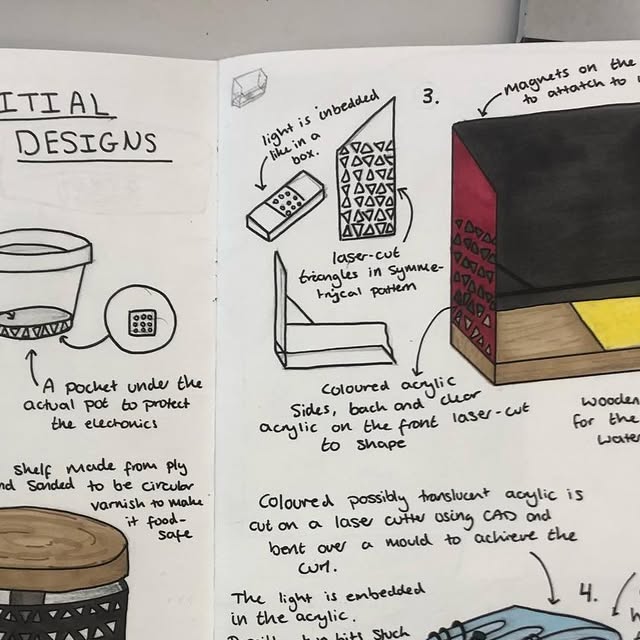 ITIAL
DESIGNS
A pocket under the
actual pot to protect
the electonics
shelf made from ply
nd sanded to be circular
varnish to make
it food-
safe
light is inbedded
like in a
box.
3.
magnets on the
to attatch to
laser-cut
triangles in symme-
trical pattern
Coloured acrylic
Sides, back and clear
acrylic on the front laser-cut
to shape
wooden
for the
water
Coloured possibly translucent acrylic is
cut on a laser cutter using CAD and
bent over a mould to achieve the
curl.
The light is embedded
in the acrylic.
4.